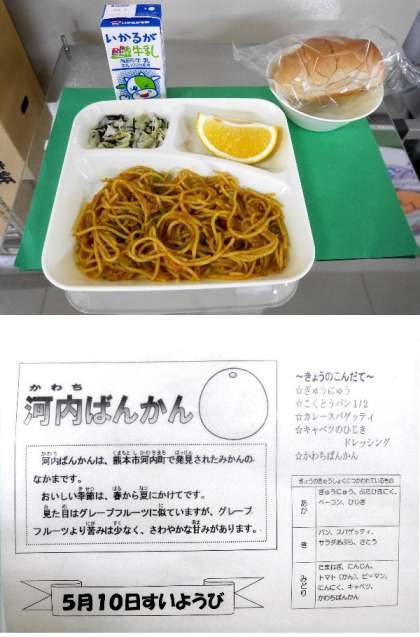 いかるが
牛乳
かわち
河内ばんかん
かわち
くまもとしかわちまち
はっけん
河内ばんかんは、熊本市河内町で発見されたみかんの
なかまです。
きせつ
はる
なつ
おいしい季節は、春から夏にかけてです。
み
め
に
見た目はグレープフルーツに似ていますが、グレープ
にが
すく
あま
フルーツより苦みは少なく、さわやかな甘みがあります。
5月10日すいようび
～きょうのこんだて～
☆ぎゅうにゅう
☆こくとうパン1/2
☆カレースパゲッティ
☆キャベツのひじき
ドレッシング
☆かわちばんかん
きょうのきゅうしょくにつかわれているもの
あか
ぎゅうにゅう、ぶたひきにく、
ベーコン、ひじき
き
パン、スパゲッティ、
サラダあぶら、さとう
みどり
たまねぎ、にんじん、
トマト(かん)、ピーマン、
にんにく、キャベツ、
かわちばんかん